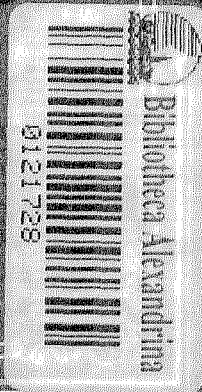 Bibliotheca Alexandrina
0121728